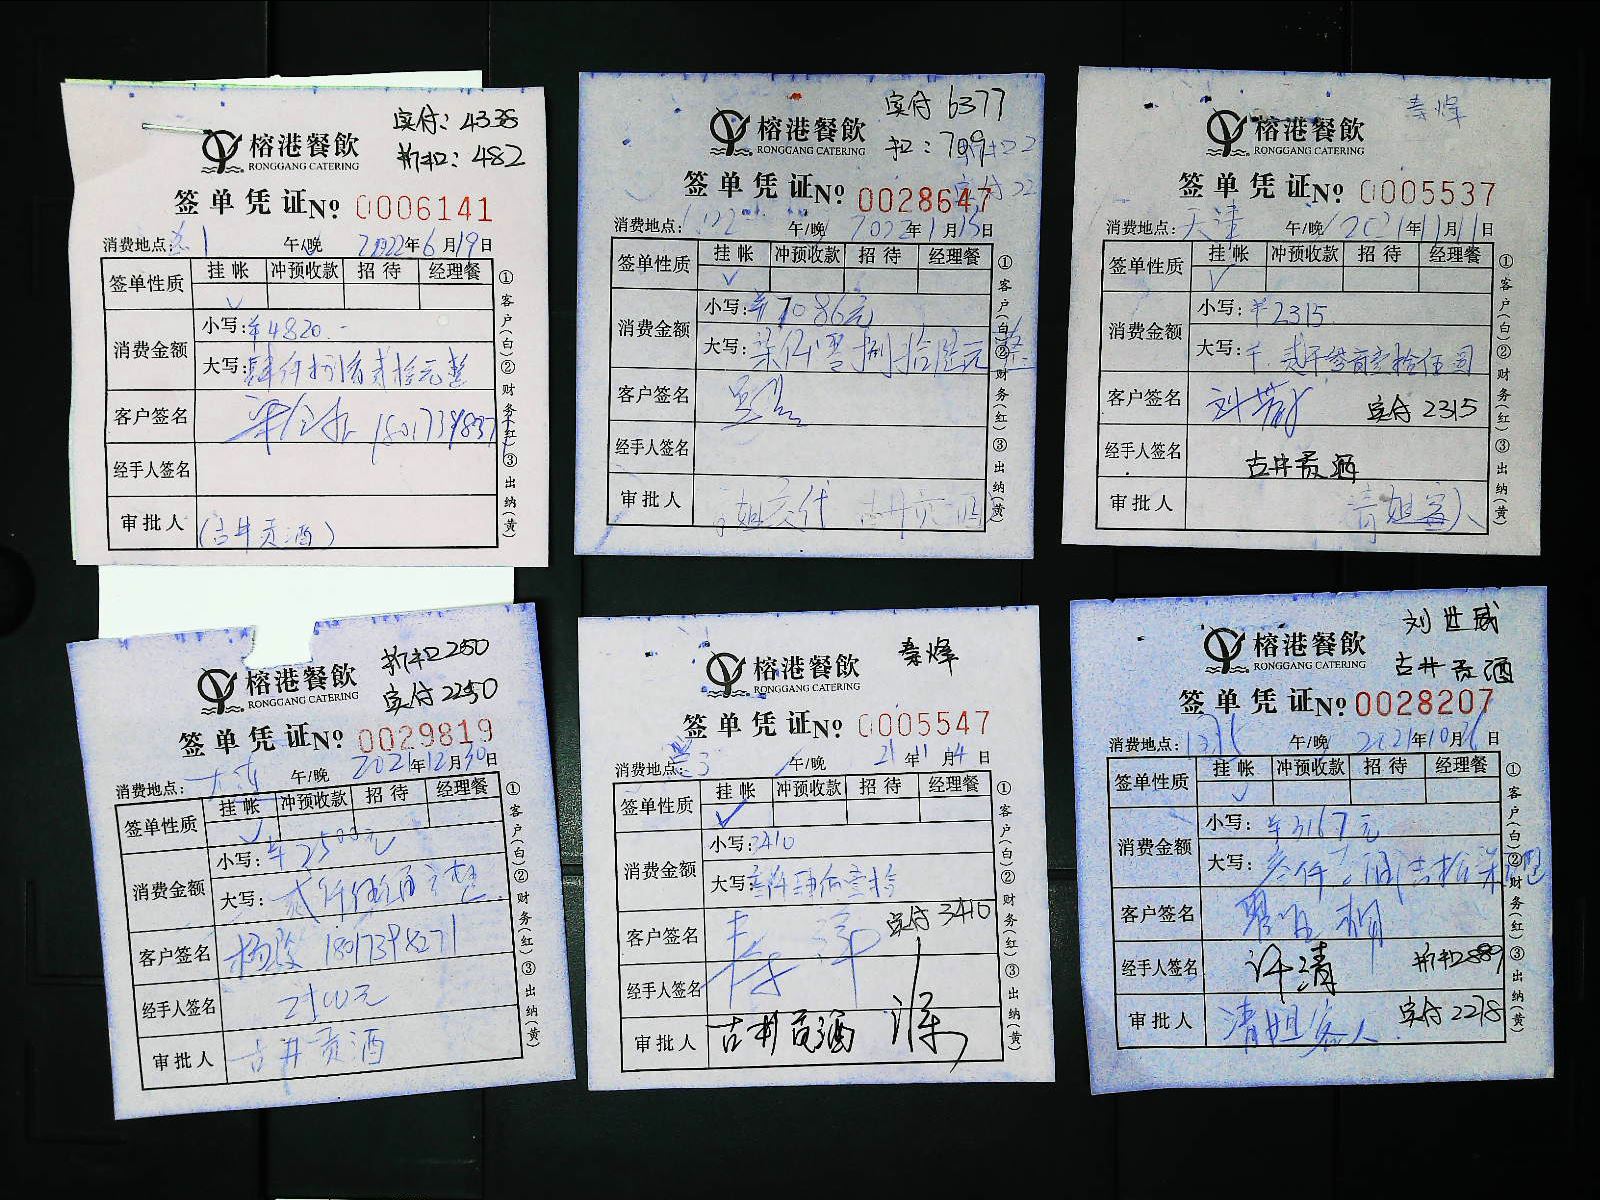 实付：4338
折扣：482
榕港餐飲
RONGGANG CATERING
签单凭证 № 0006141
消费地点： 1 午/晚 2022年6月19日
签单性质 挂帐 冲预收款 招待 经理餐
✓
消费金额 小写：¥4820.-
大写：肆仟捌佰贰拾元整
客户签名 18017398837
经手人签名
审批人 (古井贡酒)
①客户(白)②财务(红)③出纳(黄)
实付 6377
扣：709
榕港餐飲
RONGGANG CATERING
签单凭证 № 0028647
消费地点： 午/晚 2022年1月15日
签单性质 挂帐 冲预收款 招待 经理餐
✓
消费金额 小写：¥7086元
大写：柒仟零捌拾陆元整
客户签名
经手人签名
审批人 姐交代 古井贡酒
①客户(白)②财务(红)③出纳(黄)
秦烽
榕港餐飲
RONGGANG CATERING
签单凭证 № 0005537
消费地点：天津 午/晚 2021年11月11日
签单性质 挂帐 冲预收款 招待 经理餐
✓
消费金额 小写：¥2315
大写：
客户签名 实付 2315
经手人签名 古井贡酒
审批人 清姐客人
①客户(白)②财务(红)③出纳(黄)
折扣 250
实付 2250
榕港餐飲
RONGGANG CATERING
签单凭证 № 0029819
消费地点： 午/晚 2021年12月30日
签单性质 挂帐 冲预收款 招待 经理餐
✓
消费金额 小写：¥2500元
大写：贰仟伍佰元整
客户签名 18017398271
经手人签名
审批人 古井贡酒
①客户(白)②财务(红)③出纳(黄)
秦烽
榕港餐飲
RONGGANG CATERING
签单凭证 № 0005547
消费地点： 3 午/晚 21年11月4日
签单性质 挂帐 冲预收款 招待 经理餐
✓
消费金额 小写：3410
大写：叁仟肆佰壹拾
客户签名 实付 3410
经手人签名
审批人 古井贡酒
①客户(白)②财务(红)③出纳(黄)
刘世威
古井贡酒
榕港餐飲
RONGGANG CATERING
签单凭证 № 0028207
消费地点： 午/晚 2021年10月 日
签单性质 挂帐 冲预收款 招待 经理餐
✓
消费金额 小写：¥3167元
大写：
客户签名
经手人签名 许清 折扣 889
审批人 清姐客人 实付 2278
①客户(白)②财务(红)③出纳(黄)